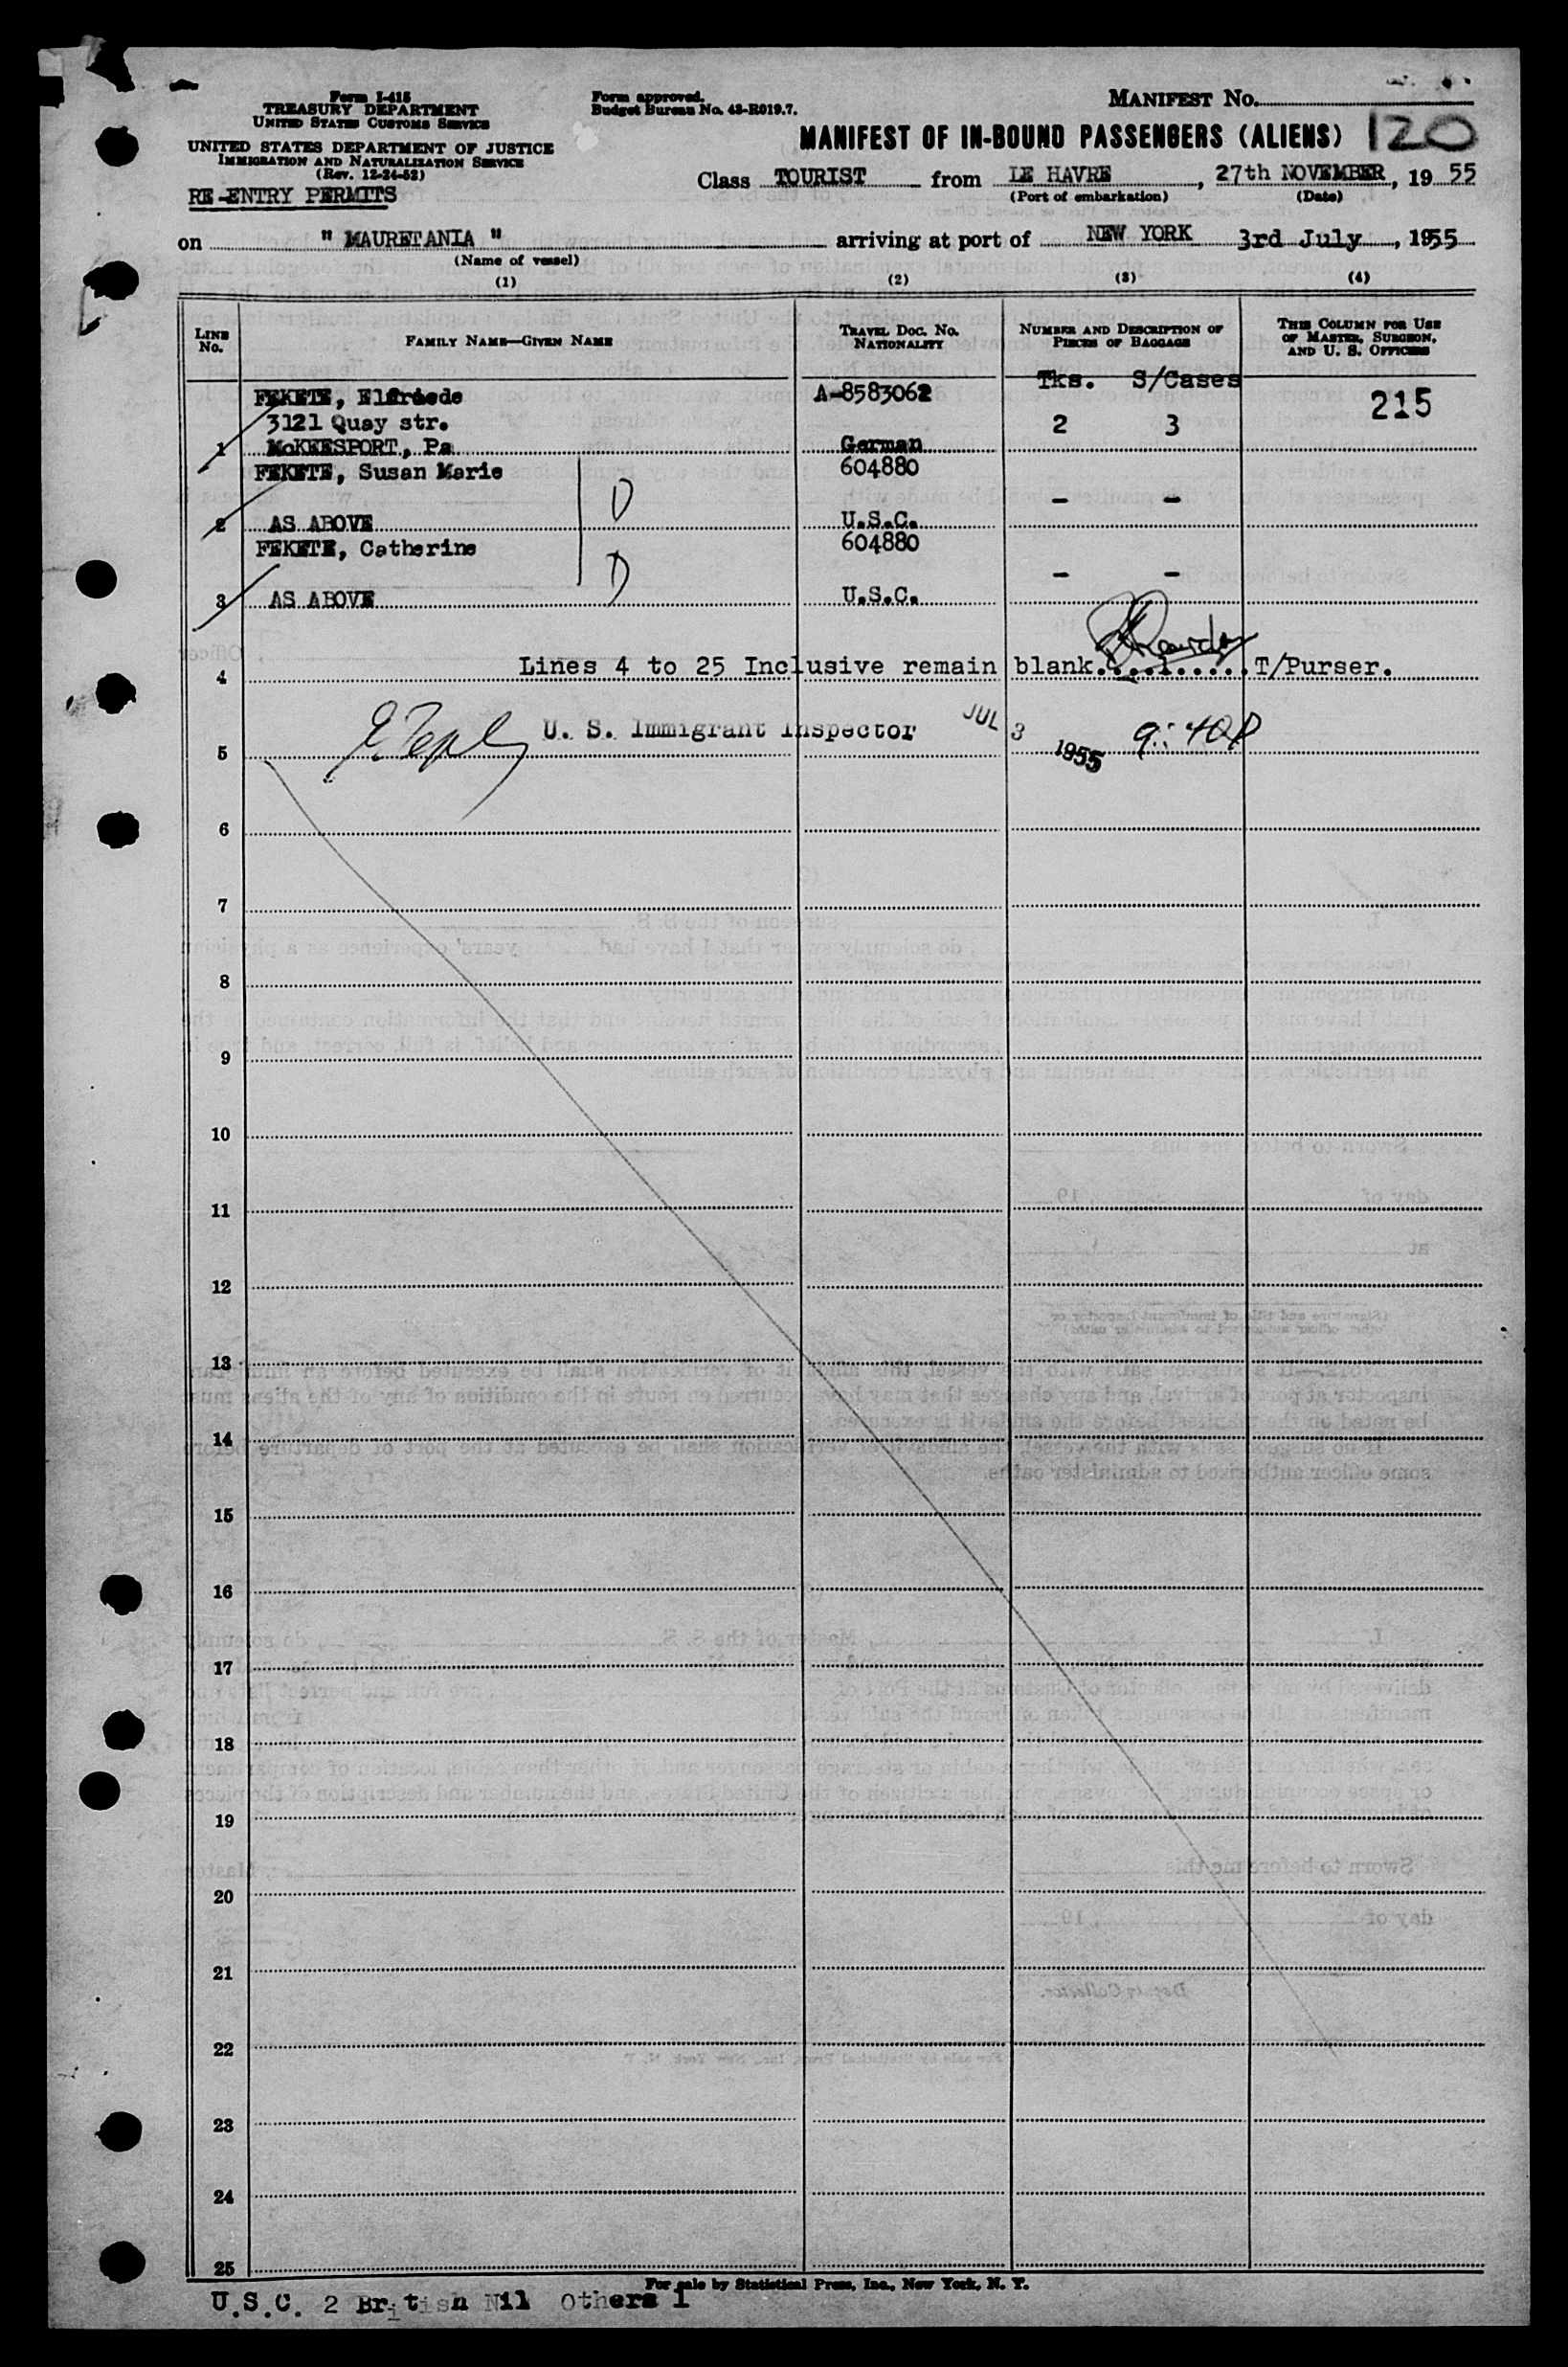 Form I-415
TREASURY DEPARTMENT
UNITED STATES CUSTOMS SERVICE
UNITED STATES DEPARTMENT OF JUSTICE
IMMIGRATION AND NATURALIZATION SERVICE
(Rev. 12-24-52)
RE-ENTRY PERMITS
Form approved.
Budget Bureau No. 43-R019.7.
MANIFEST NO.
MANIFEST OF IN-BOUND PASSENGERS (ALIENS) 120
Class TOURIST from LE HAVRE, 27th NOVEMBER, 1955
(Port of embarkation) (Date)
on " MAURETANIA " arriving at port of NEW YORK 3rd July, 1955
(Name of vessel)
(1) (2) (3) (4)
LINE NO. FAMILY NAME—GIVEN NAME TRAVEL DOC. NO. NATIONALITY NUMBER AND DESCRIPTION OF PIECES OF BAGGAGE THIS COLUMN FOR USE OF MASTER, SURGEON, AND U. S. OFFICERS
Tks. S/Cases
FEKETE, Elfriede A-8583062 215
3121 Quay str. 2 3
1 McKEESPORT, Pa German
FEKETE, Susan Marie 604880
D - -
2 AS ABOVE U.S.C.
FEKETE, Catherine 604880
D - -
3 AS ABOVE U.S.C.
4 Lines 4 to 25 Inclusive remain blank. T/Purser.
5 U. S. Immigrant Inspector JUL 3 1955 9:40P
6
7
8
9
10
11
12
13
14
15
16
17
18
19
20
21
22
23
24
25
For sale by Statistical Press, Inc., New York, N. Y.
U.S.C. 2 British Nil Others 1